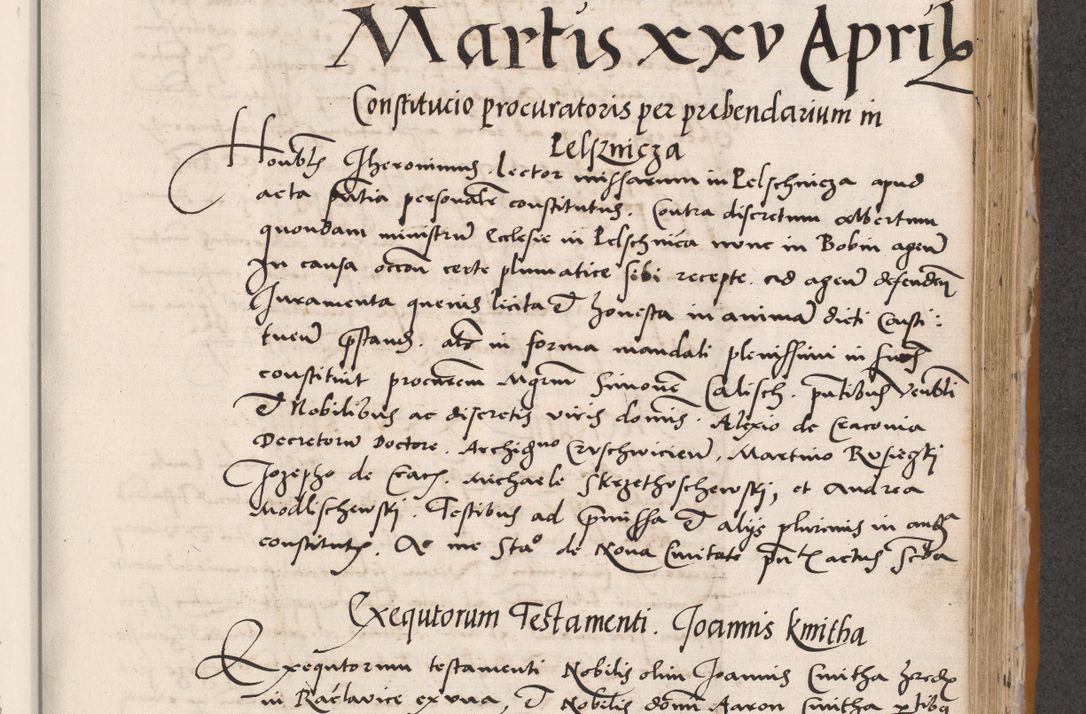 Martis xxv Aprilis
Constitucio procuratoris per prebendarium in
Lelsznicza
Honblis Jheronimus . lector missarum in Lelschnicza apud
acta pntia personalr constitutus . Contra discretum Albertum
quondam ministru Ecclesie in Lelschnica nunc in Bobin agen
In causa occon certe plumatice sibi recepte . ad agen defenden
Juramenta quevis licita et honesta in anima dicti Consti:
tuen prestand . ac in forma mandati plenissimi in
constituit procurem Mgrm Simone Calisch . pntibus venbli
et Nobilibus ac discretis viris dominis . Alexio de Craconia
Decretoru Doctore . Archigno Curschwicien . Martino Rusieczki
Jozepho de Crac . Michaele Skrzethuschewski, et Andrea
Modlischewski . Testibus ad premissa et alijs plurimis in
constitutis . Ac me Stao de Nova Civitate pntis actus Scriba
Exequtorum Testamenti . Joannis Kmitha
Exequtorum testamenti Nobilis olim Joannis Cmitha hredis
in Raclavice ex una, et Nobilis domini Aaron Cmitha ptibus